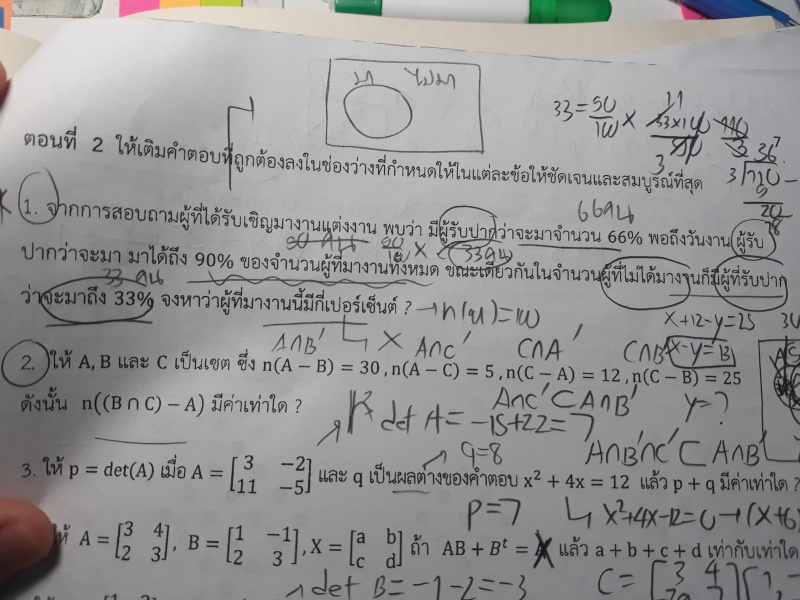 มา ไม่มา
ตอนที่ 2 ให้เติมคำตอบที่ถูกต้องลงในช่องว่างที่กำหนดให้ในแต่ละข้อให้ชัดเจนและสมบูรณ์ที่สุด
66คน
1. จากการสอบถามผู้ที่ได้รับเชิญมางานแต่งงาน พบว่า มีผู้รับปากว่าจะมาจำนวน 66% พอถึงวันงาน ผู้รับ
ปากว่าจะมา มาได้ถึง 90% ของจำนวนผู้ที่มางานทั้งหมด ขณะเดียวกันในจำนวนผู้ที่ไม่ได้มางานก็มีผู้ที่รับปาก
33คน
ว่าจะมาถึง 33% จงหาว่าผู้ที่มางานนี้มีกี่เปอร์เซ็นต์ ?
x+12-y=25
A∩B' A∩C' C∩A' C∩B' x-y=13
2. ให้ A, B และ C เป็นเซต ซึ่ง n(A − B) = 30 , n(A − C) = 5 , n(C − A) = 12 , n(C − B) = 25
A∩C'⊂A∩B'
ดังนั้น n((B ∩ C) − A) มีค่าเท่าใด ?
y=?
det A = -15+22=7
q=8 A∩B'∩C'⊂A∩B'
3. ให้ p = det(A) เมื่อ A = [3 −2
11 −5] และ q เป็นผลต่างของคำตอบ x² + 4x = 12 แล้ว p + q มีค่าเท่าใด ?
p=7 x²+4x-12=0→(x+6)
ให้ A = [3 4
2 3], B = [1 −1
2 3], X = [a b
c d] ถ้า AB + Bᵗ = X แล้ว a + b + c + d เท่ากับเท่าใด
det B = -1-2=-3